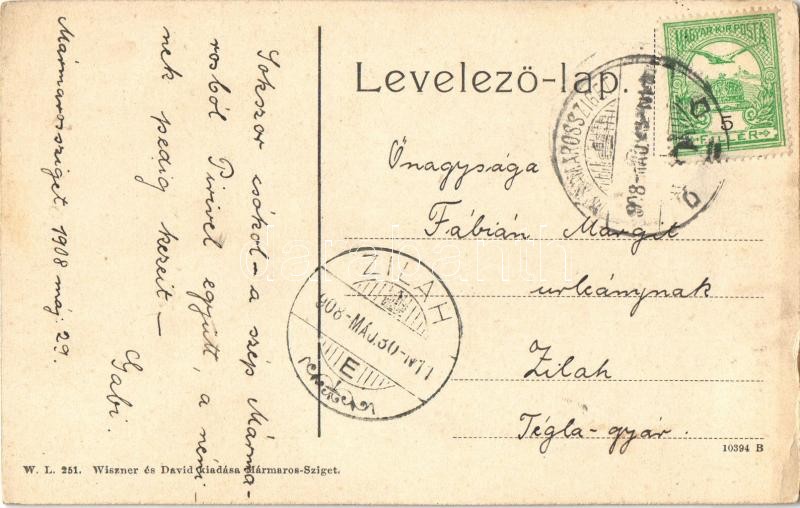 Levelező-lap.
MAGYAR KIR. POSTA
5
FILLÉR
MÁRMAROSSZIGET
Önagysága
Fábián Margit
urleánynak
Zilah
Tégla-gyár.
ZILAH
908-MÁJ.30-N11
E
Sokszor csókol - a szép Márma-
rosból Pirivel együtt, a néni
nek pedig kezeit -
Gabi.
Mármarossziget, 1908 máj. 29.
10394 B
W. L. 251. Wiszner és David kiadása Mármaros-Sziget.
darabanth